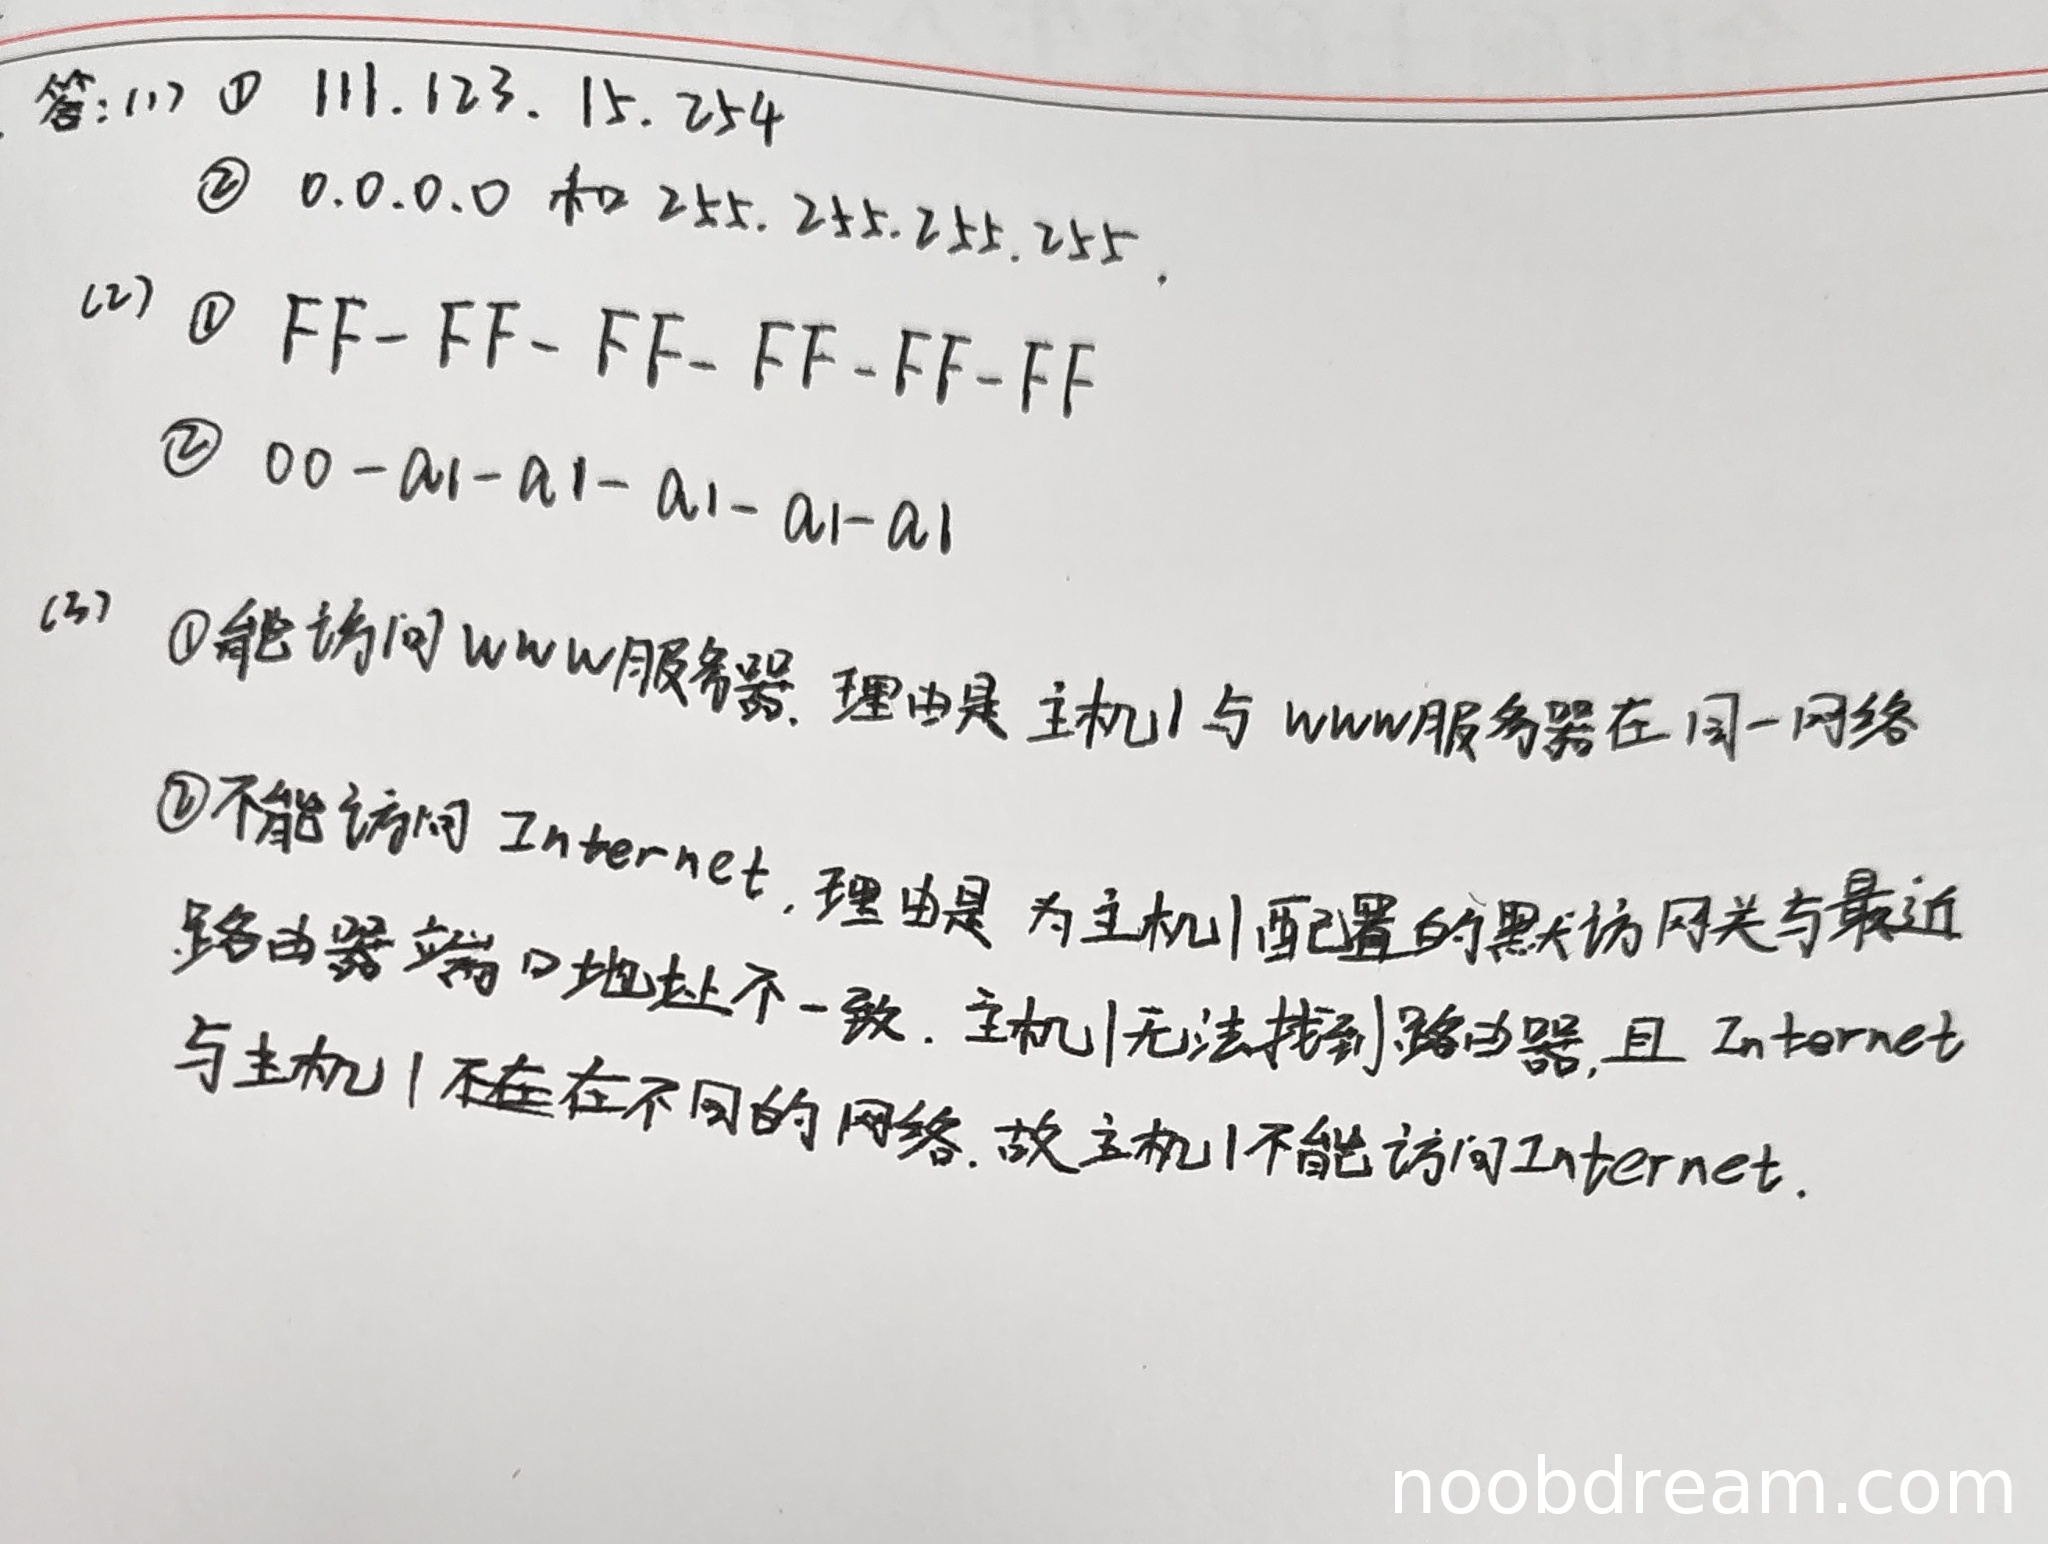 答:(1) ① 111.123.15.254
② 0.0.0.0 和 255.255.255.255.
(2) ① FF-FF-FF-FF-FF-FF
② 00-a1-a1-a1-a1-a1
(3) ①能访问WWW服务器.理由是主机1与WWW服务器在同一网络
②不能访问Internet.理由是为主机1配置的默访网关与最近
路由器端口地址不一致.主机1无法找到路由器,且Internet
与主机1不在在不同的网络.故主机1不能访问Internet.
noobdream.com